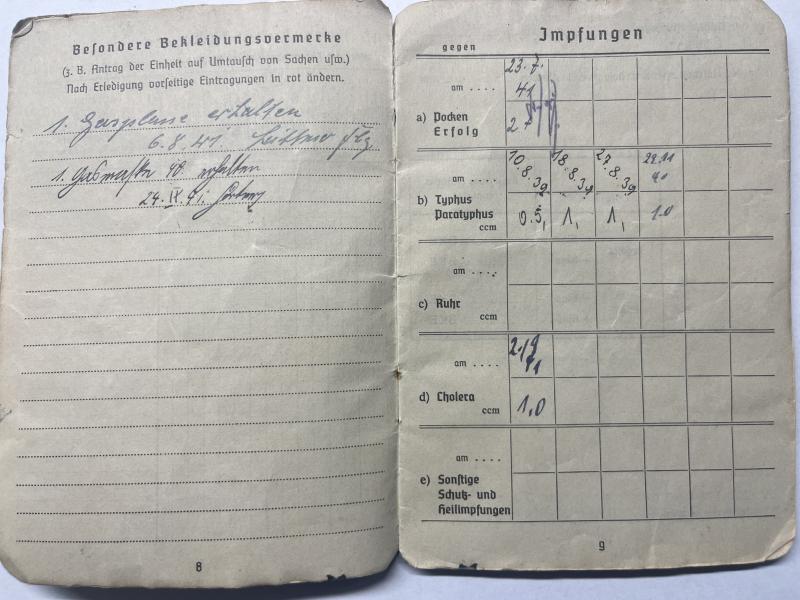 Besondere Bekleidungsvermerke
(z. B. Antrag der Einheit auf Umtausch von Sachen usw.)
Nach Erledigung vorseitige Eintragungen in rot ändern.
1. Gasplane erhalten
6.8.41.
1. Gasmaske 40 erhalten
24. IX. 41.
8
Impfungen
gegen
am . . . . 23. 7. 41
a) Pocken
Erfolg 2 +
am . . . . 10. 8. 39 18. 8. 39 27 8. 39
b) Typhus
Paratyphus
ccm 0.5, 1, 1, 1.0
am . . . .
c) Ruhr
ccm
am . . . . 2./9 41
d) Cholera
ccm 1,0
am . . . .
e) Sonstige
Schutz- und
Heilimpfungen
9